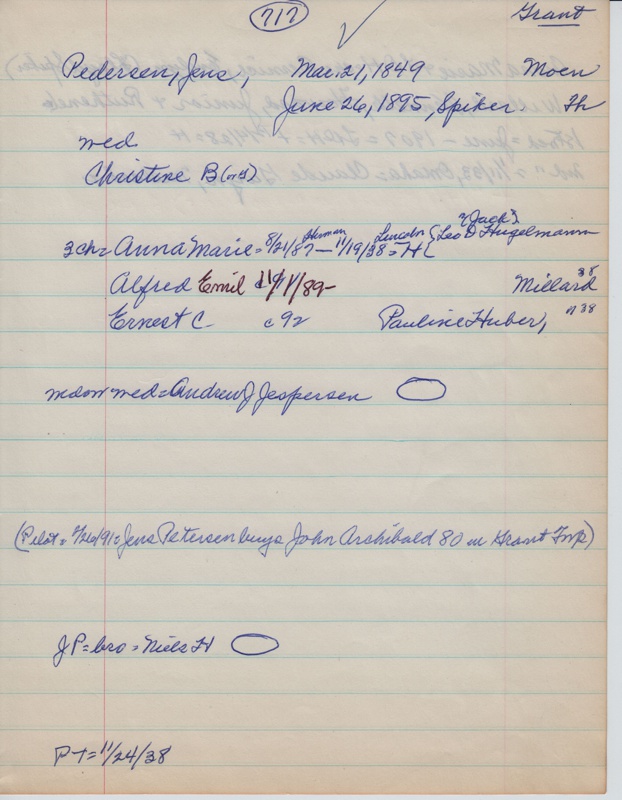 717
Grant
Pedersen, Jens, Mar. 21, 1849 Moen
June 26, 1895, Spiker. Th
med
Christine B (nd)
"Jack"
3 ch = Anna Marie = 8/21/87 Herman - 11/19/38 Lincoln = H (Leo D Hugelmann
Alfred Emil 11/11/89- Millard 38
Ernest C c92 Pauline Huber, n38
widow med = Andrew J Jespersen
(Pilot = 2/26/91 = Jens Petersen buys John Archibald 80 in Grant Twp)
JP = bro = Niels H
PT = 11/24/38